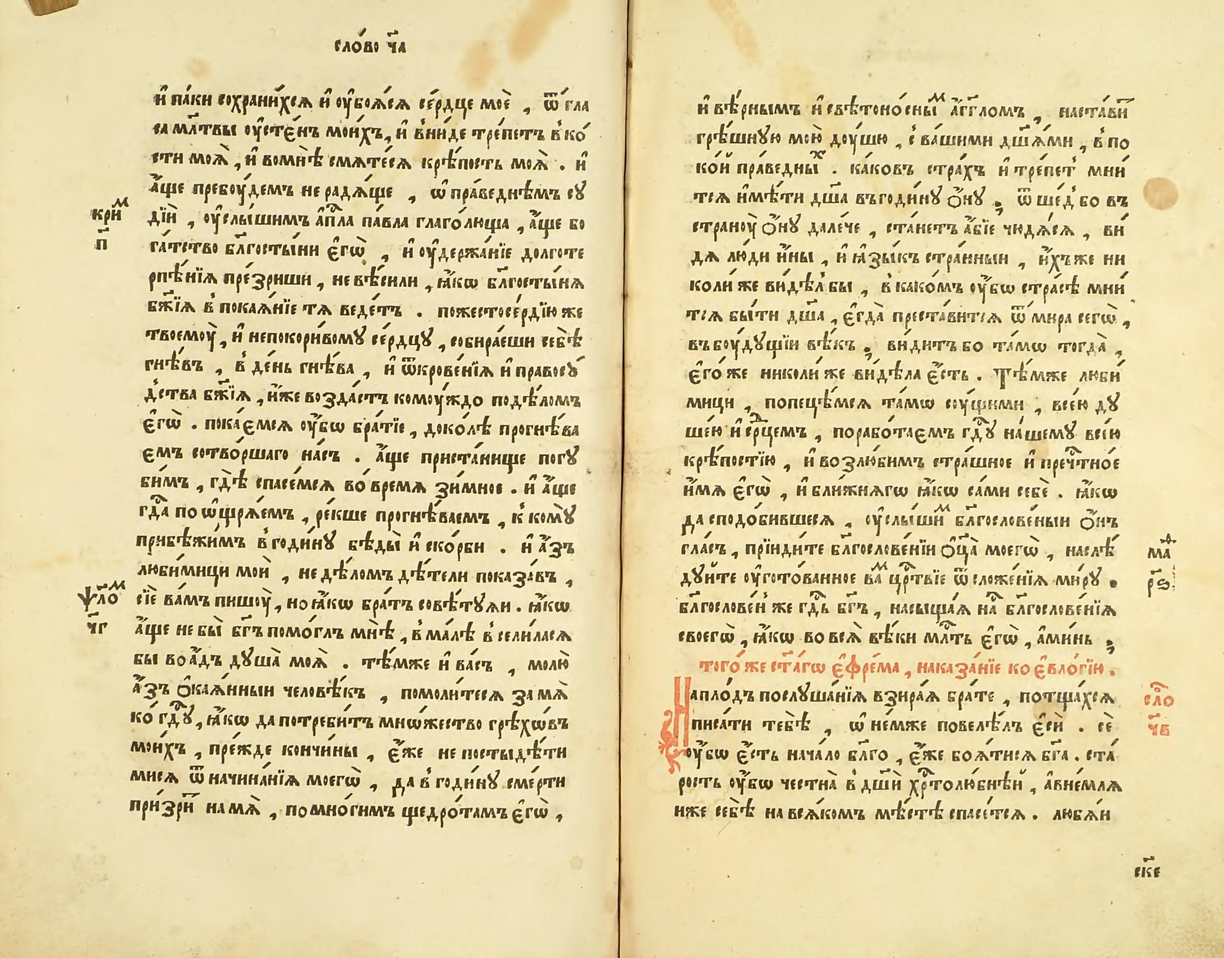 сло́во ч҃а
и҆ па́ки сохрани́хся и҆ ѹ҆боѧ́сѧ се́рдце моѐ , ѿ гла
са мл҃твы ѹ҆сте́нъ мои́хъ, и҆ вни́де тре́петъ в ко́
сти моѧ̀ , и҆ во мнѣ̀ смѧте́сѧ крѣ́пость моѧ̀ . и҆
а҆́ще пребѹ́демъ не радѧ́ще , ѡ҆ пра́веднѣмъ сꙋ
ри́м
п҃
ді́и , ѹ҆слы́шимъ а҆пⷭ҇ла па́вла глаго́люща , а҆́ще бо
га́тство бл҃госты́ни є҆гѡ̀ , и҆ ѹ҆держа́нїе долготе
рпѣ́нїѧ пре́зриши , не вѣ́си ли , ꙗ҆́кѡ бл҃госты́нѧ
бж҃їѧ в покаѧ́нїе тѧ ведѐтъ . по жестосе́рдїю же
твоемꙋ̀ , и҆ непокори́вомꙋ се́рдцꙋ , собира́еши себѣ̀
гнѣ́въ , в де́нь гнѣ́ва , и҆ ѿкрове́нїѧ и҆ правосꙋ́
дства бж҃їѧ , и҆́же возда́стъ комꙋ́ждо по дѣ́ломъ
є҆гѡ̀ . пока́емсѧ ѹ҆́бѡ бра́тїе , доко́лѣ прогнѣ́ва
емъ сотво́ршаго на́съ . а҆́ще приста́нище погꙋ
би́мъ , гдѣ̀ спасе́мсѧ во вре́мѧ зи́мное . и҆ а҆́ще
гдⷭ҇а поѡ҆щрѧ́емъ , ре́кше прогнѣ́ваемъ , к комꙋ̀
прибѣжи́мъ в годи́нꙋ бѣды̀ и҆ ско́рби . и҆ а҆́зъ
люби́мици мои̑ , не дѣ́ломъ дѣ́тели показа́въ ,
ѱало́м
ч҃г
сїѐ ва́мъ пишꙋ̀ , но ꙗ҆́кѡ бра́тъ совѣ́тꙋѧи . ꙗ҆́кѡ
а҆́ще не бы̀ бг҃ъ помо́глъ мнѣ̀ , в ма́лѣ всели́ласѧ
бы во а҆́дъ дꙋша̀ моѧ̀ . тѣ́мже и҆ ва́съ , молю̀
а҆́зъ ѻ҆каѧ́нныи человѣ́къ , помоли́тесѧ за мѧ̀
ко гдⷭ҇ꙋ , ꙗ҆́кѡ да потреби́тъ мно́жество грѣхѡ́въ
мои́хъ , пре́жде кончи́ны , є҆́же не постыдѣ́ти
мисѧ ѿ начина́нїѧ моегѡ̀ , да в годи́нꙋ сме́рти
при́зри́т на мѧ̀ , по мно́гимъ щедро́тамъ є҆гѡ̀ ,
и҆ вѣ́рнымъ и҆ свѣтоно́сным а҆́гг҃ломъ , наста́вит
грѣ́шнꙋю мою̀ дꙋ́шю , с ва́шими дш҃а́ми , в по
ко́и пра́ведных . како́въ стра́хъ и҆ тре́петъ мни
тсѧ и҆мѣ́ти дш҃а̀ въ годи́нꙋ ѻ҆́нꙋ ; ѿше́д бо въ
странꙋ̀ ѻ҆́нꙋ дале́че , ста́нетъ а҆́бїе чюдѧ́сѧ , ви
дѧ лю́ди и҆́ны , и҆ ꙗ҆зы́къ стра́нныи , и҆́хъже ни
коли́же ви́дѣл бы , в како́мъ ѹ҆́бѡ стра́сѣ мни
тсѧ бы́ти дш҃а̀ , є҆гда̀ преста́витсѧ ѿ ми́ра сегѡ̀ ,
въ бꙋ́дꙋщїи вѣ́къ ; ви́дитъ бо та́мѡ тогда̀ ,
є҆го́же николи́же ви́дѣла є҆́сть . Тѣ́мже люби́
мици , попеце́мсѧ та́мѡ сꙋ́щими , все́ю дꙋ
ше́ю и҆ срⷣцемъ , порабо́таемъ гдⷭ҇ꙋ на́шемꙋ все́ю
крѣ́постїю , и҆ возлю́бимъ стра́шное и҆ пречⷭ҇тно́е
и҆́мѧ є҆гѡ̀ , и҆ бли́жнѧгѡ ꙗ҆́кѡ са́ми себѐ . ꙗ҆́кѡ
да сподо́бившесѧ , ѹ҆слы́шим бл҃гослове́ныи ѻ҆́нъ
гла́съ , прїиди́те бл҃гослове́нїи ѻ҆ц҃а̀ моегѡ̀ , наслѣ́
дꙋйте ѹ҆гото́ванное вам црⷭ҇твїе ѿ сложе́нїѧ ми́рꙋ .
бл҃гослове́н же гдⷭ҇ь бг҃ъ , насыща́ѧ на бл҃гослове́нїѧ
своегѡ̀ , ꙗ҆́кѡ во всѧ̀ вѣ́ки млⷭ҇ть є҆гѡ̀ , а҆ми́нь ;
того́же ст҃а́гѡ є҆фре́ма , наказа́нїе ко є҆вло́гїю .
сло́
ч҃в
На пло́дъ послꙋша́нїѧ взира́ѧ бра́те , потща́хсѧ
писа́ти тебѣ̀ , ѡ҆ не́мже повелѣ́лъ є҆сѝ . сѐ
ѹ҆́бѡ є҆́сть нача́ло бл҃го , є҆́же боѧ́тисѧ бг҃а . ста́
рость ѹ҆́бѡ честна̀ в дш҃и̑ хрⷭ҇толю́бнѣи , а҆ вне́млѧ
иже себѣ̀ на всѧ́комъ мѣ́стѣ спасе́тсѧ . любѧ́и